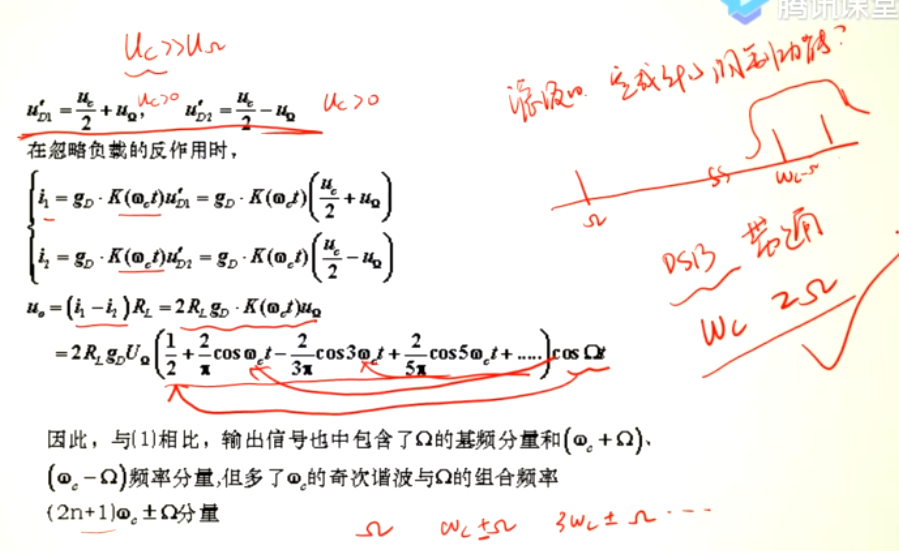 腾讯课堂
Uc>>UΩ
滤波 完成什么调制功能?
u'_{D1} = u_c/2 + u_Ω, Uc>0 u'_{D2} = u_c/2 - u_Ω Uc>0
在忽略负载的反作用时,
i₁ = g_D · K(ω_c t)u'_{D1} = g_D · K(ω_c t)(u_c/2 + u_Ω)
i₂ = g_D · K(ω_c t)u'_{D2} = g_D · K(ω_c t)(u_c/2 - u_Ω)
Ω ωc-Ω
DSB 带通
ωc 2Ω
u_o = (i₁ - i₂)R_L = 2R_L g_D · K(ω_c t)u_Ω
= 2R_L g_D U_Ω(1/2 + 2/π cos ω_c t - 2/3π cos3ω_c t + 2/5π cos5ω_c t + .....)cos Ωt
因此,与(1)相比,输出信号也中包含了Ω的基频分量和(ω_c + Ω)、
(ω_c - Ω)频率分量,但多了ω_c的奇次谐波与Ω的组合频率
(2n+1)ω_c ± Ω分量
Ω ωc±Ω 3ωc±Ω ....